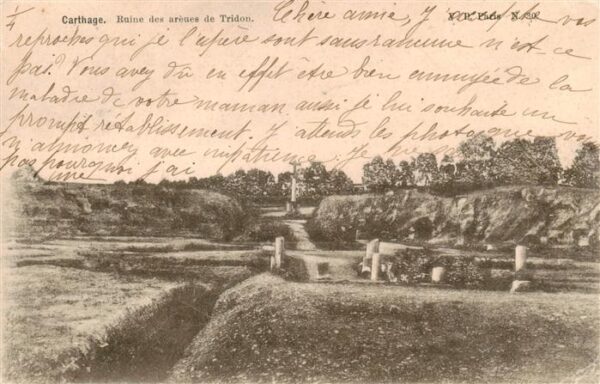 Carthage. Ruine des arènes de Tridon.
N. D. Paris N. 30.
1/4
Chère amie, J'
vos
reproches que je l'espère sont sans rancune n'est-ce
pas? Vous avez dû en effet être bien ennuyée de la
maladie de votre maman aussi je lui souhaite un
prompt rétablissement. J'attends les photos que vous
m'annoncez avec impatience. Je
pas pourquoi j'ai
une